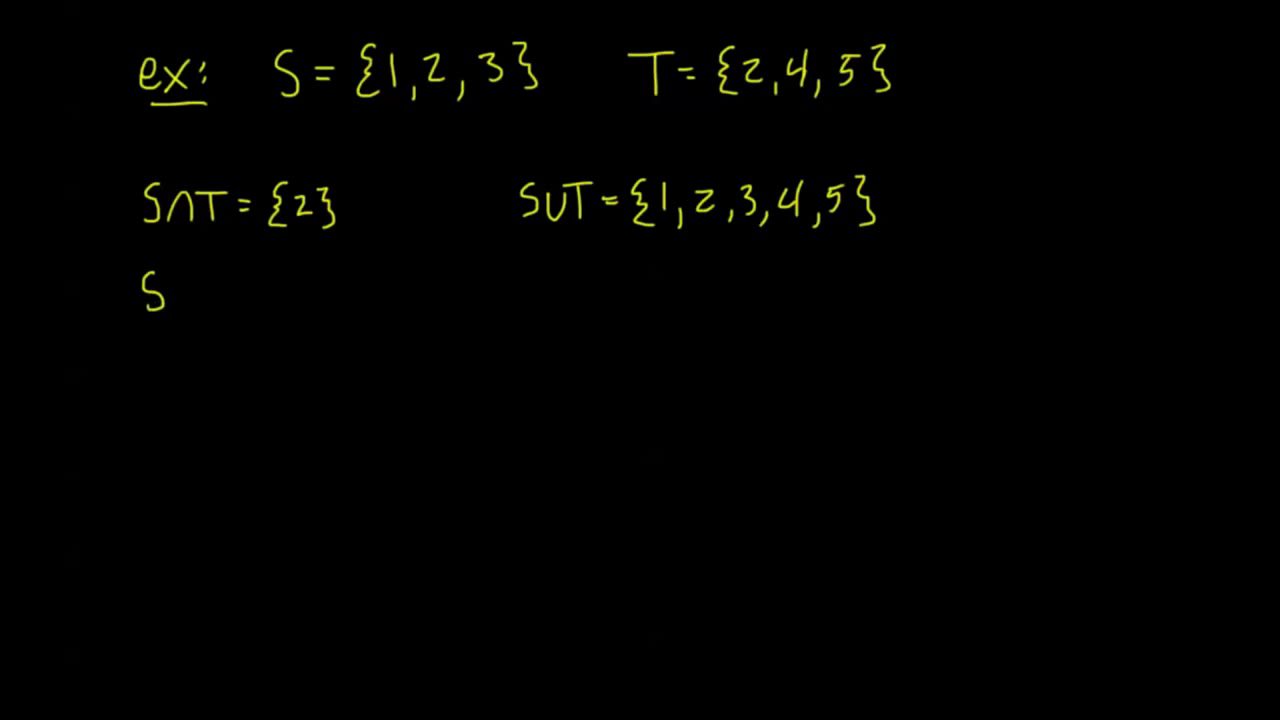 ex: S = {1, 2, 3} T = {2, 4, 5}
S∩T = {2} S∪T = {1, 2, 3, 4, 5}
S